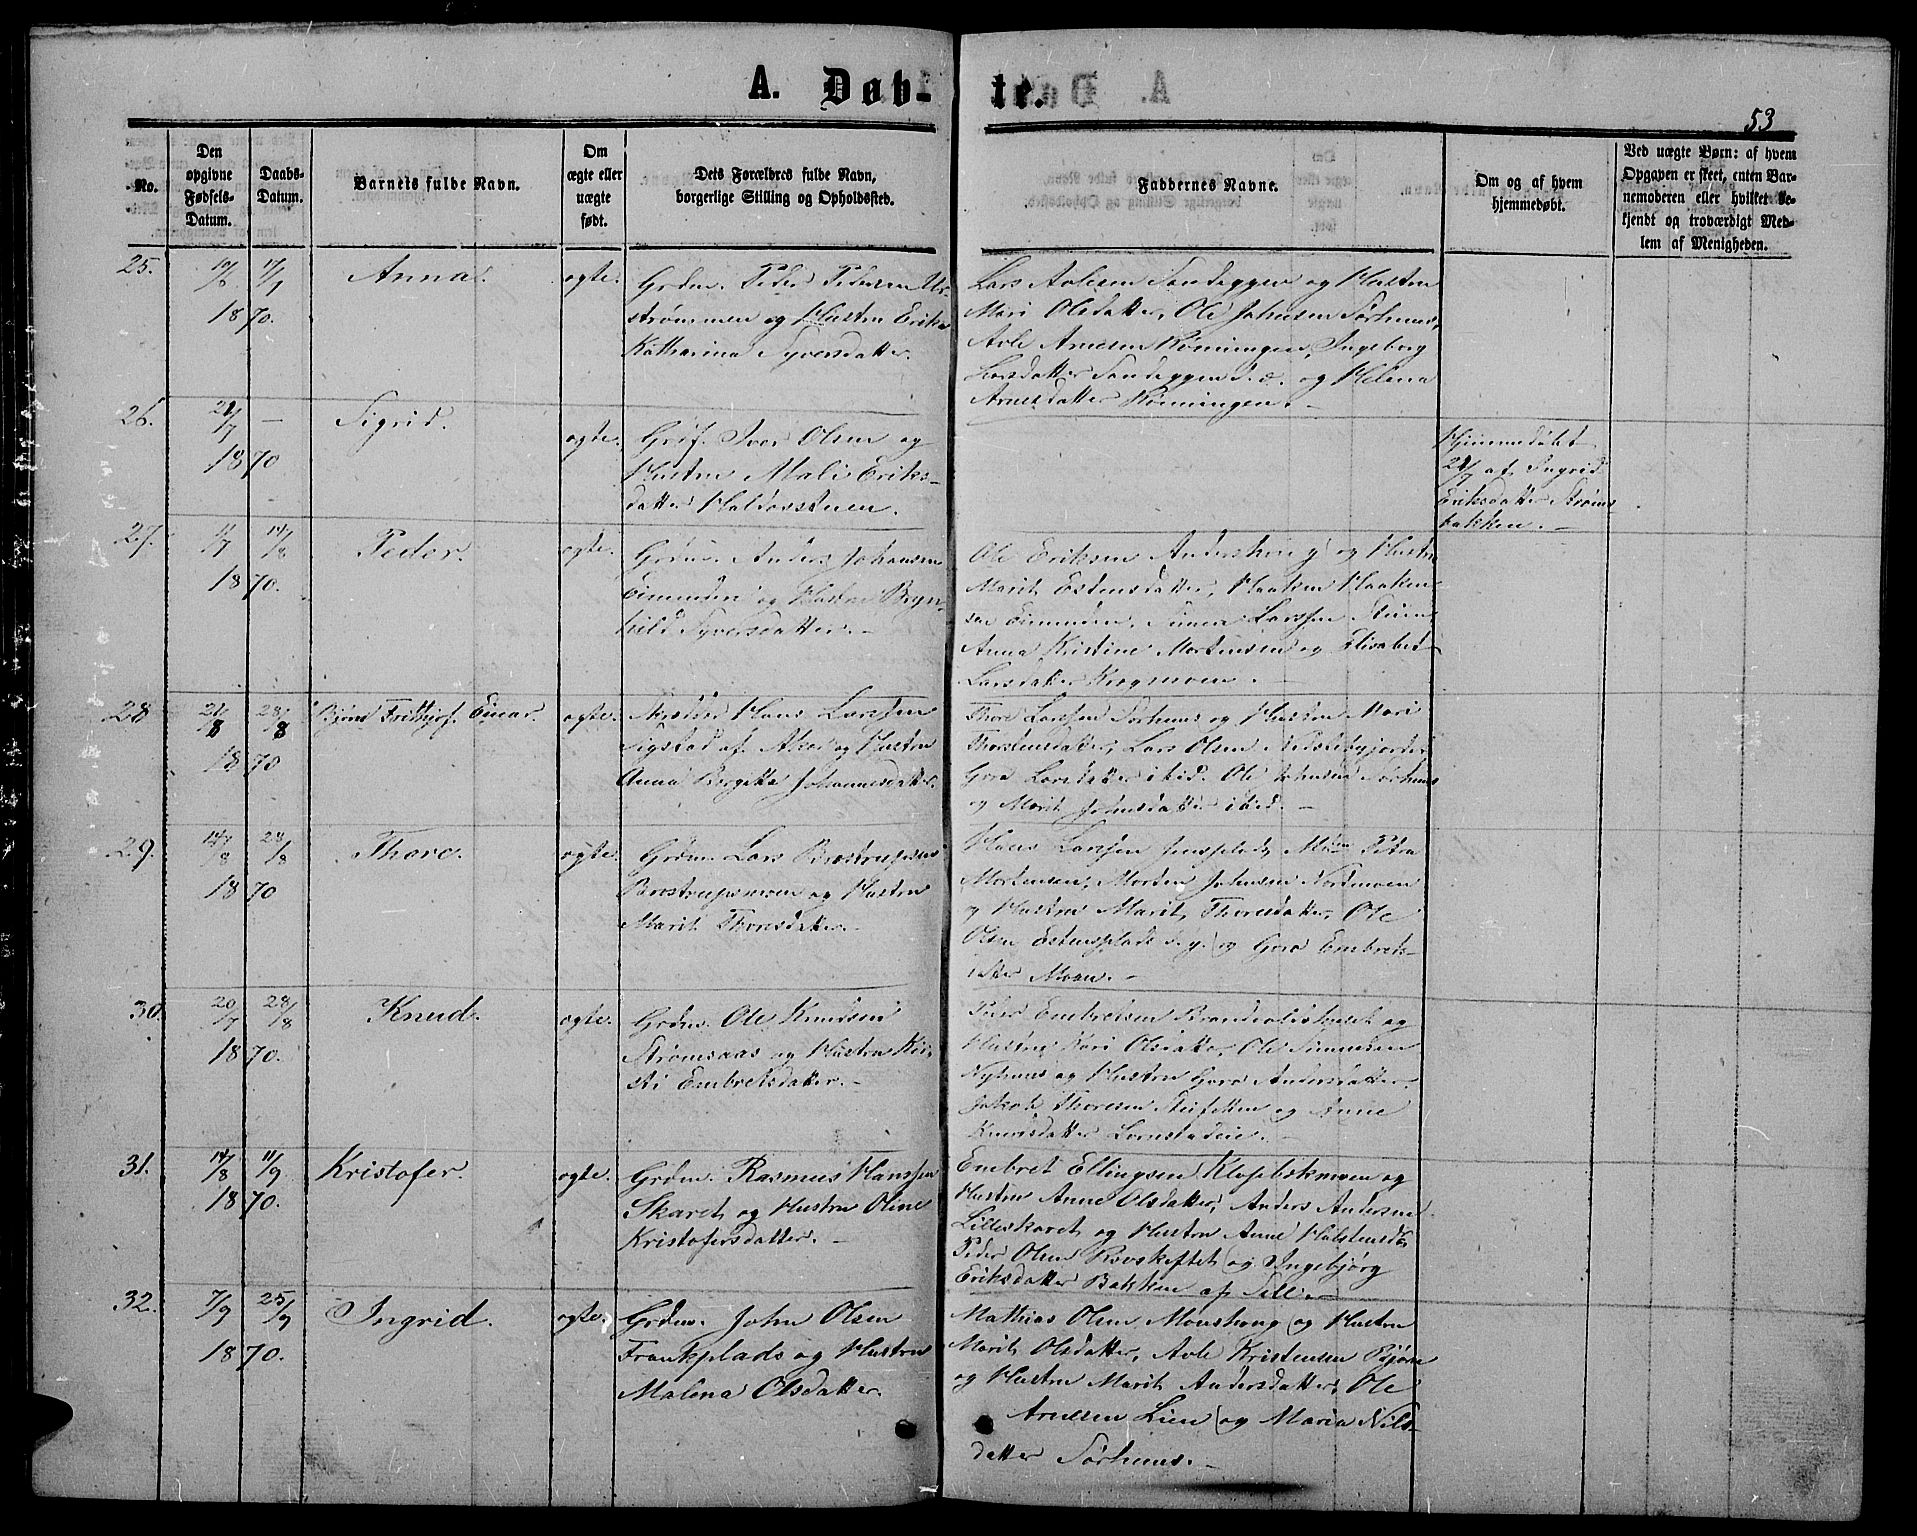 A. Døb-
te.
53
No.
Den opgivne Fødsels-Datum.
Daabs-Datum.
Barnets fulde Navn.
Om ægte eller uægte født.
Dets Forældres fulde Navn, borgerlige Stilling og Opholdssted.
Faddernes Navne.
Om og af hvem hjemmedøbt.
Ved uægte Børn: af hvem Opgaven er skeet, enten Barnemoderen eller hvilket bekjendt og troværdigt Medlem af Menigheden.
25.
17/7
1870.
Anna.
ægte.
Grdm. Peder Pedersen
strømmen og Hustru Erika
Katharina Syversdatter.
Lars Avlesen Sandeggen og Hustru
Mari Olsdatter, Ole Johnsen Sørhuus,
Avle Arnesen Rønningen, Ingeborg
Larsdatter Sandeggen og Helena
Arnesdatter Rønningen. -
26.
21/7
-
1870
Sigrid.
ægte.
Iver Olsen og
Hustru Mali Eriks-
datter Haldorsstuen.
Hjemmedøbt
21/7 af Ingrid
Eriksdatter Strøms
bakken. -
27.
14/8
1870.
Peder.
ægte.
Grdm. Anders Johansen
Eimunden og Hustru Bryn-
hild Syversdatter. -
Ole Eriksen Andershoug og Hustru
Marit Estensdatter, Haaken Haaken
sen Eimunden, Simen Larssen Stuen,
Anna Kristine Mortensen og Elisabet
Larsdatter Krogmoen. -
28
21/8
28/8
1870
Bjørn Frithjof Einar.
ægte.
Hans Larssen
Sigstad af Aker og Hustru
Anna Birgitta Johannesdatter.
Thore Larssen Sørhuus og Hustru Mari
Thorstensdatter, Lars Olsen
Gora Larsdatter ibid. Ole Johnsen Sørhuus
og Marit Johnsdatter ibid. -
29.
14/8
28/8
1870
Thore.
ægte.
Grdm. Lars Brostrupsen
Brostrupsmoen og Hustru
Marit Thoresdatter. -
Hans Larssen Jensplads, Petra
Mortensen, Morten Johnsen Nordmoen
og Hustru Marit Thoresdatter, Ole
Olsen Estensplads og Gora Embrets-
datter Moen. -
30.
20/7
28/8
1870.
Knud.
ægte.
Grdm. Ole Knudsen
Strømsaas og Hustru Kir-
sti Embretsdatter. -
Peder Embretsen Brandvoldshuset og
Hustru Kari Olsdatter, Ole Simensen
Nyhuus og Hustru Gora Andersdatter.
Jakob Thoresen og Anne
Knudsdatter -
31.
14/8
11/9
1870.
Kristofer.
ægte.
Grdm. Rasmus Hanssen
Skaret og Hustru Oline
Kristofersdatter. -
Embret Ellingsen Klofbækmoen og
Hustru Anne Olsdatter, Anders Andersen
Lilleskaret og Hustru Anne Halstensd.
Peder Olsen Rovskiftet og Ingebjørg
Eriksdatter Bakken af Sell. -
32.
7/9
25/9
1870.
Ingrid.
ægte.
Grdm. John Olsen
Frankplads og Hustru
Malena Olsdatter.
Mathias Olsen Monshoug og Hustru
Marit Olsdatter, Avle Kristensen Bjøre
og Hustru Marit Andersdatter, Ole
Arnesen Lien og Maria Nils-
datter Sørhuus. -